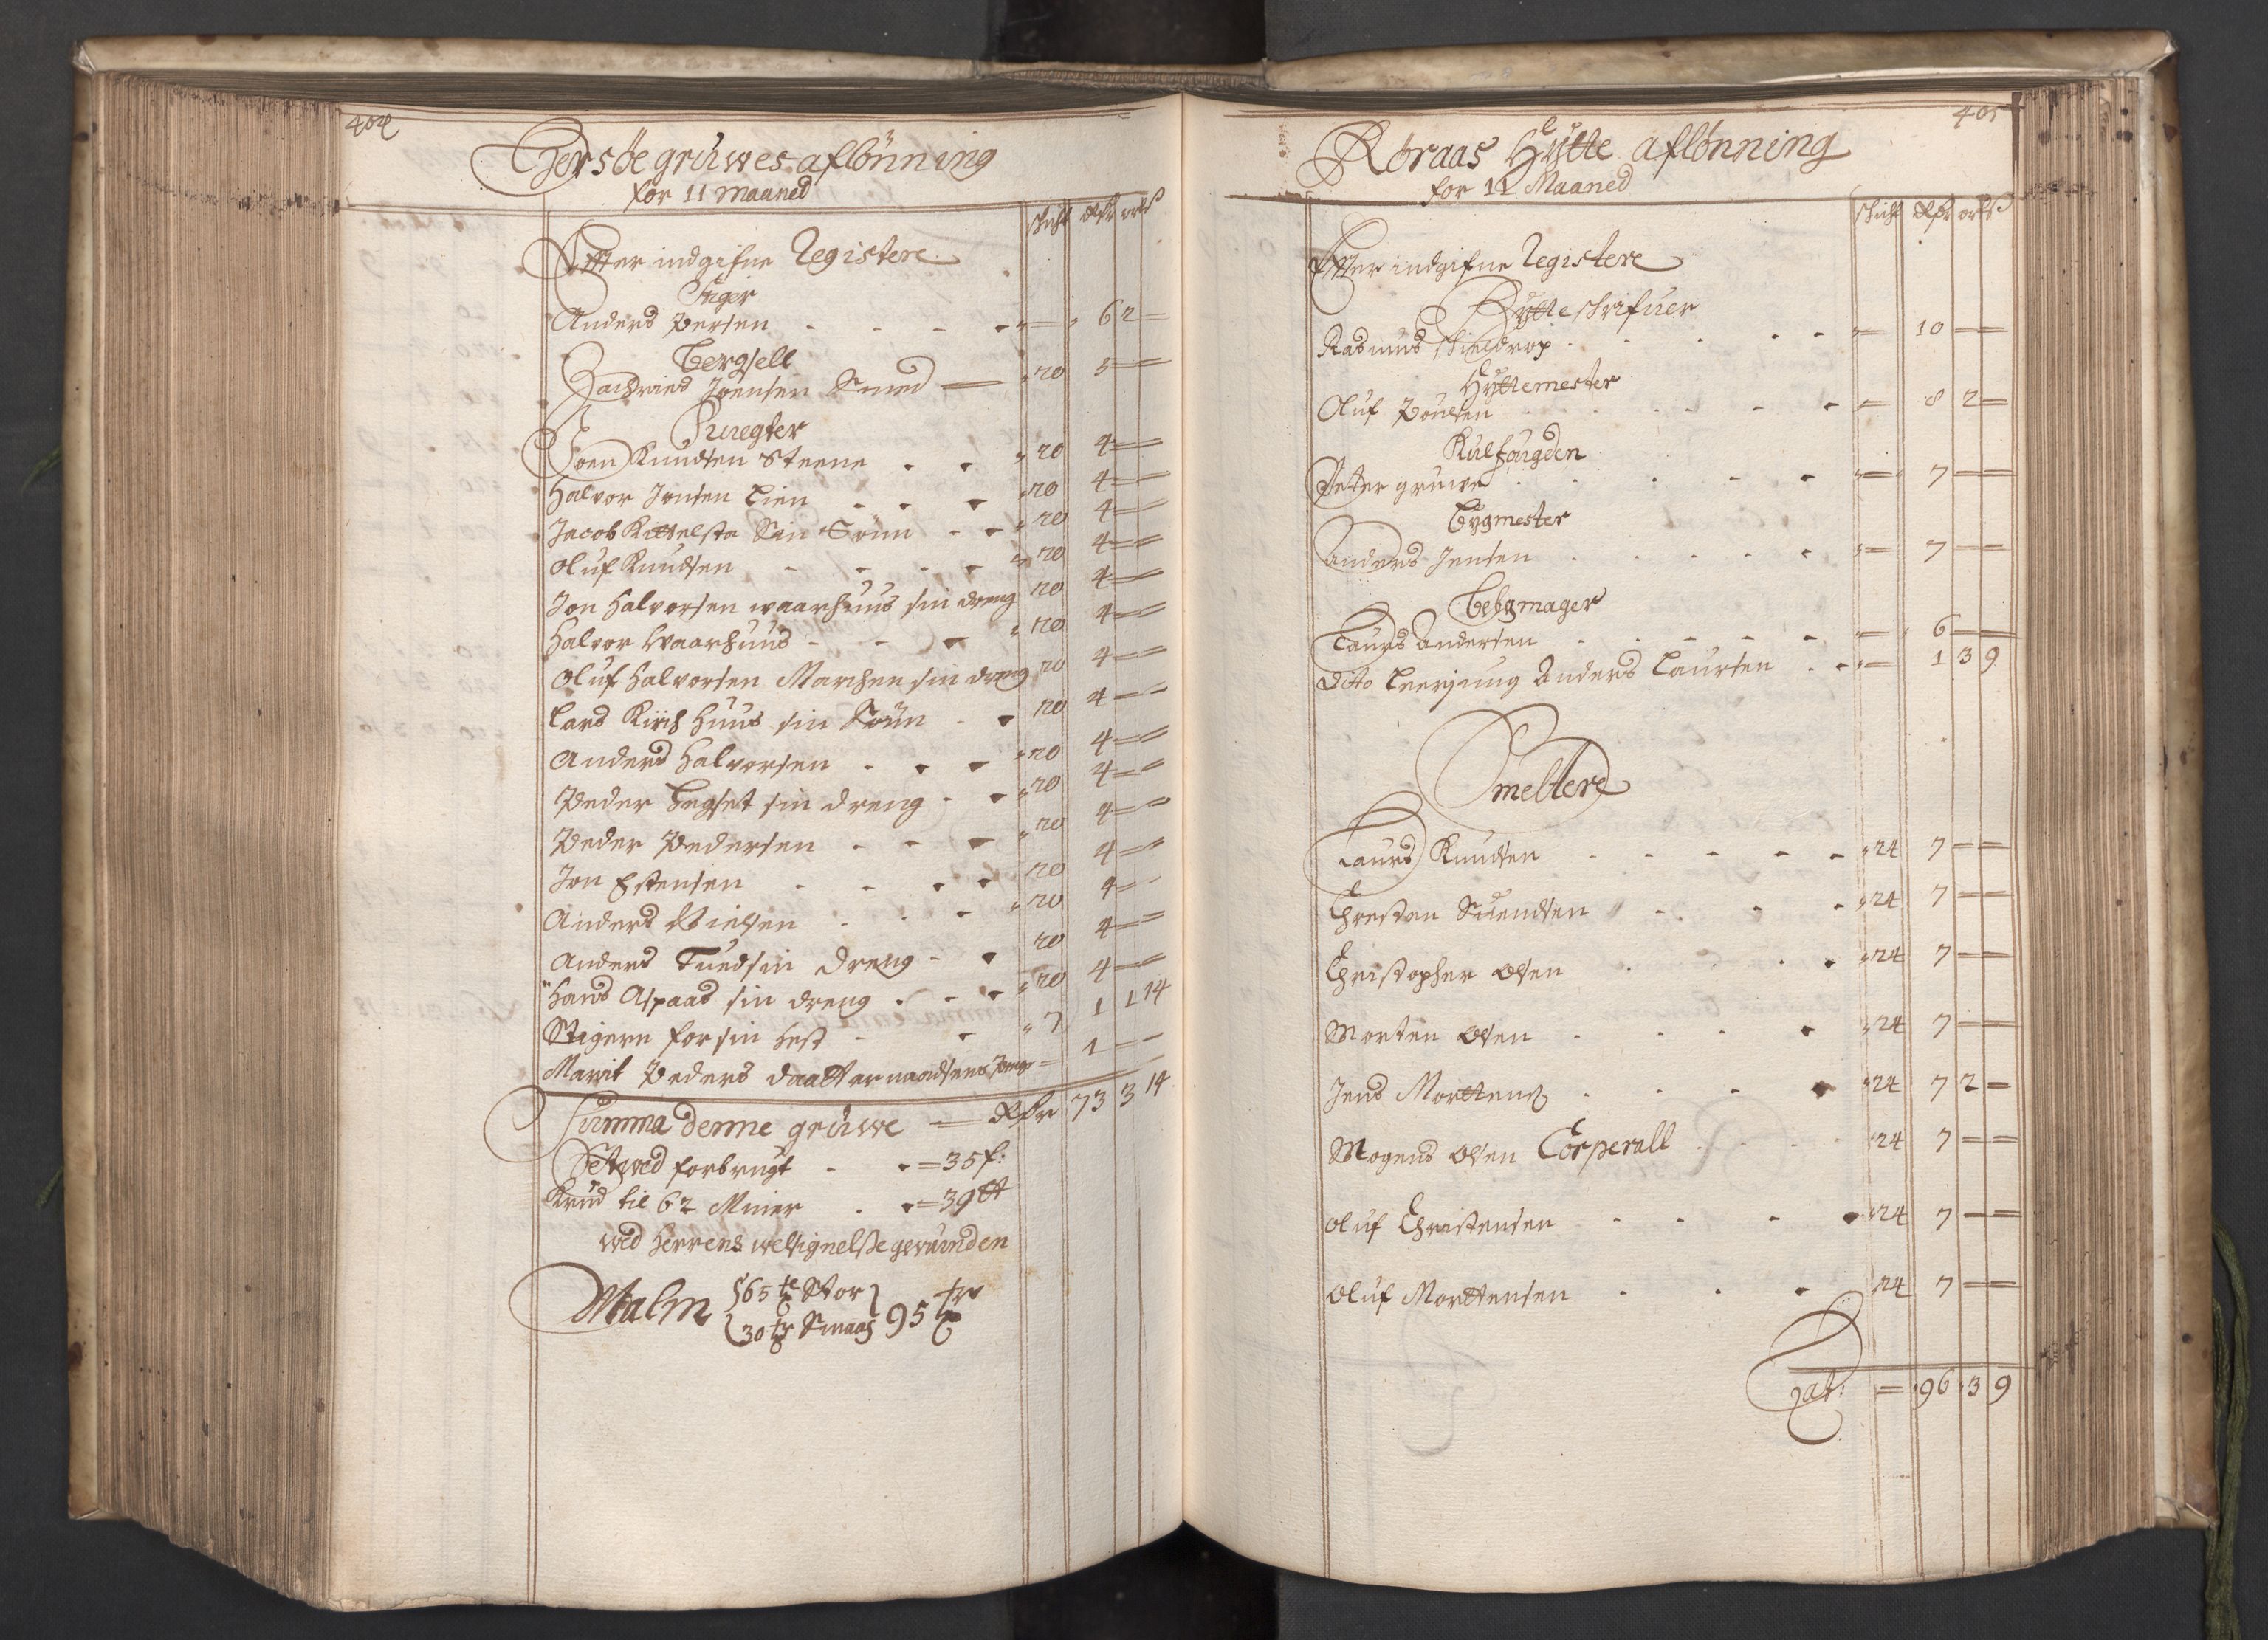 404
Giersöe gruwes aflönning
for 11 Maaned
schicht Rdr ort s
Efter indgifne Registere
Stiger
Anders Persen - - - = 6 2 =
Bergsell
Zacharies Joensen Smed = 20 5 =
Knegter
Joen Knudsen Steene . . 20 4 =
Halvor Jonsen Lien . . . 20 4 =
Jacob Kittelsta Sin Sönn - - 20 4 =
Oluf Knudsen - - - - 20 4 =
Jon Halvorsen waarhuus sin dreng 20 4 =
Halvor Waarhuus - - - 20 4 =
Oluf Halvorsen Marchen sin dreng 20 4 =
Lars Kirch Huus sin Sönn - - 20 4 =
Anders Halvorsen . . - 20 4 =
Peder Begset sin dreng - - 20 4 =
Peder Pedersen - - - 20 4 =
Jon Estensen - - - - 20 4 =
Anders Nielsen . . - 20 4 =
Anders Tued sin dreng - - 20 4 =
Hans Aspaas sin dreng . - - 20 4 =
Stigern for sin Hest - - 7 1 1 14
Marrit Peders daatter = 1 =
Summa denne gruwe = Rdr 73 3 14
Settwed forbrugt - - = 35 f:
Krud til 62 Minier . - = 39 tt
wed Herrens welsignelsse gewunden
Malm 65 tr Stor
30 tr Smaa 95 tr
405
Röraas Hytte aflönning
for 11 Maaned
schicht Rdr ort s
Efter indgifne Registere
Hytteskrifuer
Rasmus Skieldrop . . . - - = 10 =
Hyttemester
Oluf Poulsen . . . - - = 8 2 =
Kulfougden
Petter gruwe . . . - - = 7 =
Bygmester
Anders Jensen . . . . - = 7 =
Belgmager
Laurs Andersen . . - - - = 6 =
Dito Leerjung Anders Laursen . - = 1 3 9
Smeltere
Laurs Knudsen - - - - - 24 7 =
Chresten Suendsen - - - 24 7 =
Christopher Olsen . . . - 24 7 =
Morten Olsen . . . - 24 7 =
Jens Mortens . . - - 24 7 2 =
Mogens Olsen Corperall . . 24 7 =
Oluf Christensen - - - - 24 7 =
Oluf Mortensen . . - 24 7 =
Lat: = 96 3 9